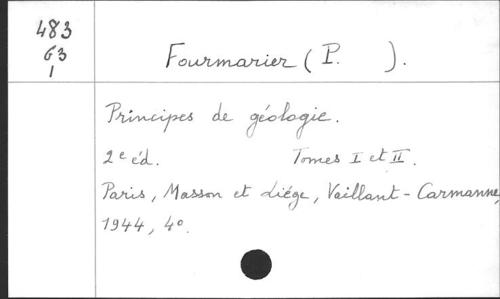 483
G3
1
Fourmarier (P. ).
Principes de géologie.
2e éd. Tomes I et II.
Paris, Masson et Liége, Vaillant-Carmanne,
1944, 4o.